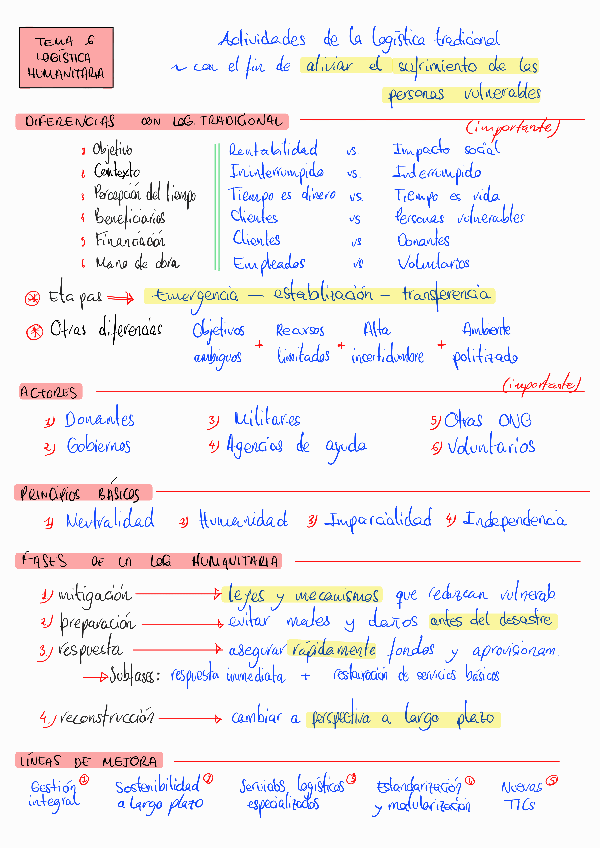 TEMA 6
LOGÍSTICA
HUMANITARIA
Actividades de la logística tradicional
~ con el fin de aliviar el sufrimiento de las
personas vulnerables
DIFERENCIAS CON LOG. TRADICIONAL
(importante)
1 Objetivo Rentabilidad vs Impacto social
2 Contexto Ininterrumpido vs. Interrumpido
3 Percepción del tiempo Tiempo es dinero vs. Tiempo es vida
4 Beneficiarios Clientes vs Personas vulnerables
5 Financiación Clientes vs Donantes
6 Mano de obra Empleados vs Voluntarios
* Etapas ⇒ Emergencia — estabilización — transferencia
* Otras diferencias Objetivos + Recursos + Alta + Ambiente
ambiguos limitados incertidumbre politizado
ACTORES
(importante)
1) Donantes 3) Militares 5) Otras ONG
2) Gobiernos 4) Agencias de ayuda 6) Voluntarios
PRINCIPIOS BÁSICOS
1) Neutralidad 2) Humanidad 3) Imparcialidad 4) Independencia
FASES DE LA LOG HUMANITARIA
1) mitigación → leyes y mecanismos que reduzcan vulnerab
2) preparación → evitar males y daños antes del desastre
3) respuesta → asegurar rápidamente fondos y aprovisionam.
→ Subfases: respuesta inmediata + restauración de servicios básicos
4) reconstrucción → cambiar a perspectiva a largo plazo
LÍNEAS DE MEJORA
Gestión ① Sostenibilidad ② Servicios logísticos ③ Estandarización ④ Nuevas ⑤
integral a largo plazo especializados y modularización TICs